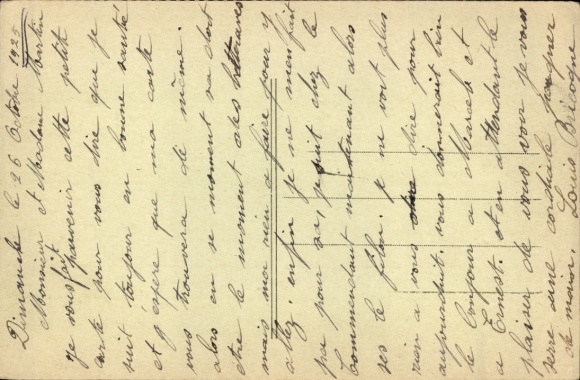 Dimanche le 26 Octobre 1925
Monsieur et Madame Martin
je vous fait parvenir cette petit
carte pour vous dire que je
suit toujour en bonne santé
et j'espere que ma carte
vous trouvera de même.
alors en se moment sa doit
etre le moment des betteraves
mais ma rien a faire pour y
allez. enfin je ne m'en fait
pas pour sa, je suit chez le
Commandant maintenant alors
ses le filon. je ne voit plus
rien a vous dire pour
aujourduit. vous donnerait bien
le bonjour a Marcel et
a Ernest. et en attendant le
plaisir de vous voir je vous
serre une cordiale poignee
de mains. Louis